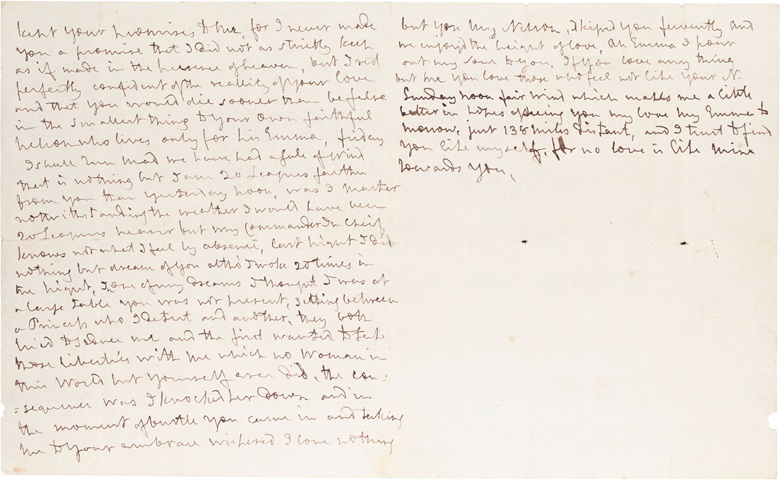 kept your promises to me, for I never made
you a promise that I did not as strictly keep
as if made in the presence of heaven, but I rest
perfectly confident of the reality of your love
and that you would die sooner than be false
in the smallest thing to your own faithful
Nelson who lives only for his Emma, friday
I shall run mad we have had a gale of wind
that is nothing but I am 20 Leagues farther
from you than yesterday noon, was I master
notwithstanding the weather I would have been
20 Leagues nearer but my Commander In Cheif
knows not what I feel by absence, last night I did
nothing but dream of you altho' I woke 20 times in
the night, In one of my dreams I thought I was at
a large table you was not present, sitting between
a Princess who I detest and another, they both
tried to seduce me and the first wanted to take
those liberties with me which no Woman in
this World but yourself ever did, the con=
=sequence was I knocked her down and in
the moment of bustle you came in and taking
me to your embrace wispered I love nothing
but you my Nelson, I kissed you fervently and
we enjoy'd the height of love, Ah Emma I pour
out my soul to you. If you love any thing
but me you love those who feel not like your N.
Sunday noon fair Wind which makes me a little
better in hopes of seeing you my love my Emma to
morrow, just 138 miles distant, and I trust to find
you like myself, for no love is like mine
towards you,